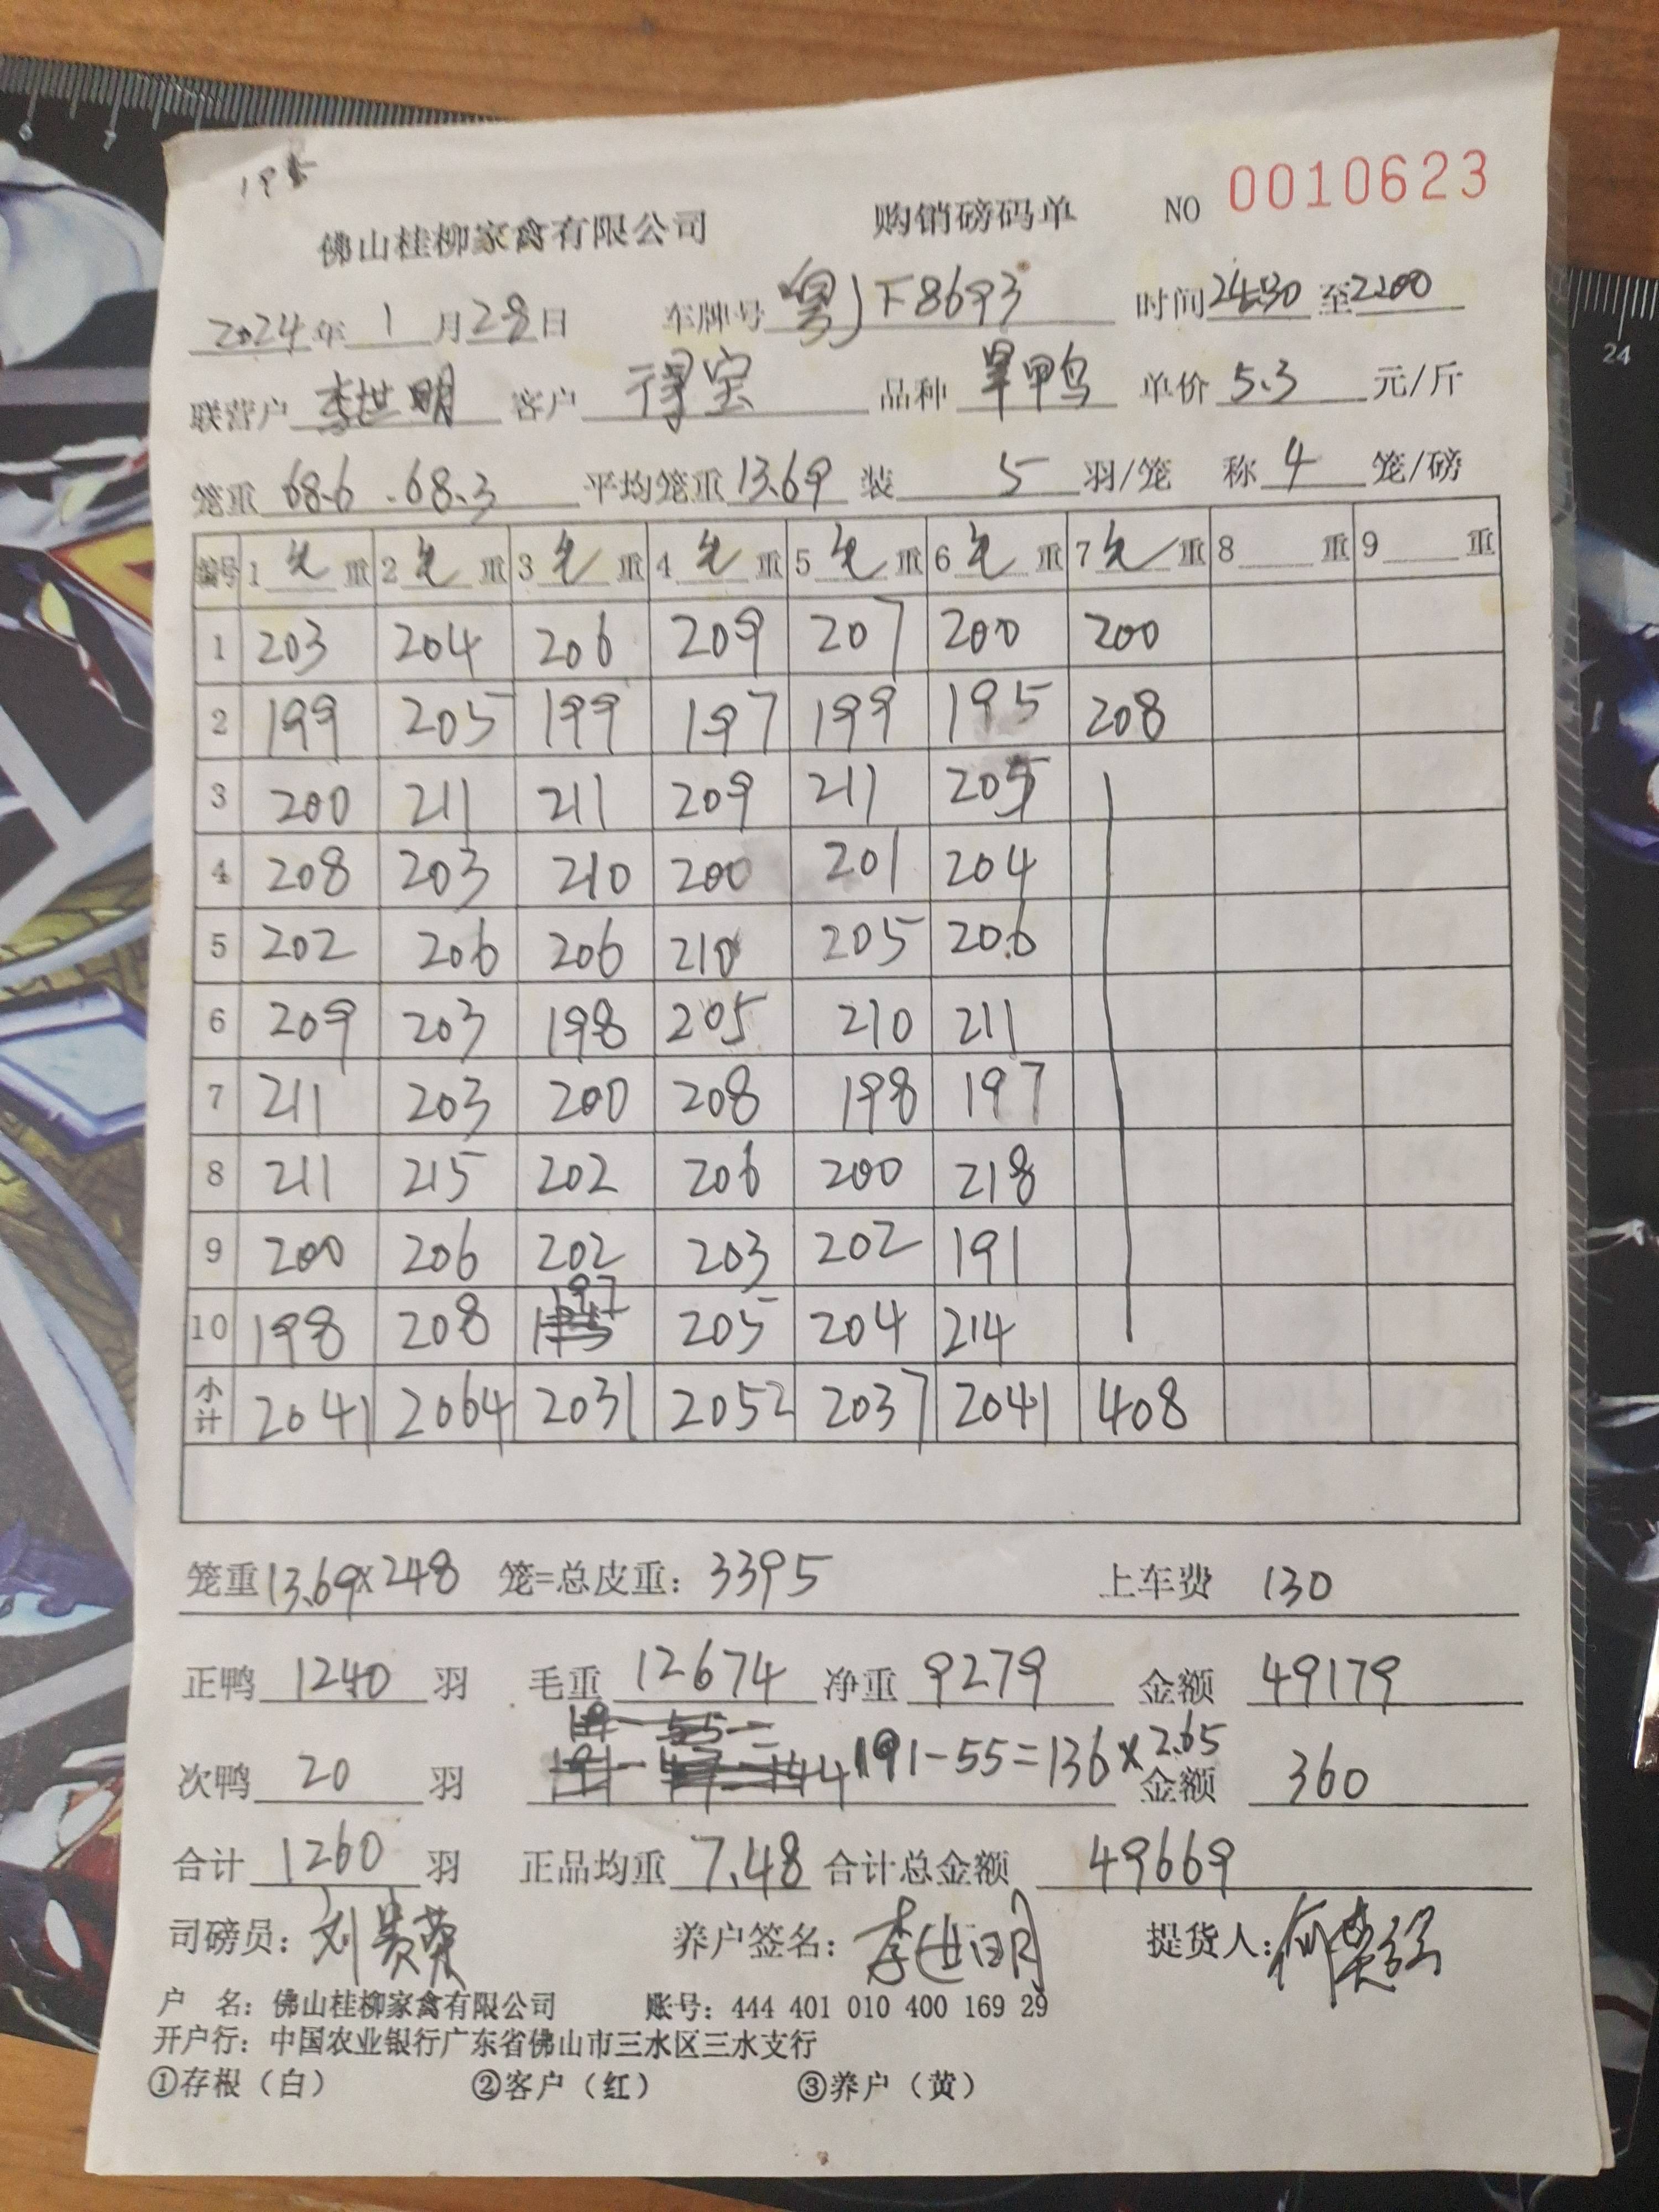 195
佛山桂柳家禽有限公司 购销磅码单 NO 0010623
2024年 1 月 28 日 车牌号 粤J F8693 时间 至 2200
联营户 李世明 客户 得宝 品种 旱鸭 单价 5.3 元/斤
笼重 68.6 .68.3 平均笼重 13.69 装 5 羽/笼 称 4 笼/磅
编号 1 毛 重 2 毛 重 3 毛 重 4 毛 重 5 毛 重 6 毛 重 7 毛 重 8 重 9 重
1 203 204 206 209 207 200 200
2 199 205 199 197 199 195 208
3 200 211 211 209 211 205
4 208 203 210 200 201 204
5 202 206 206 210 205 206
6 209 203 198 205 210 211
7 211 203 200 208 198 197
8 211 215 202 206 200 218
9 200 206 202 203 202 191
10 198 208 197 205 204 214
小计 2041 2064 2031 2052 2037 2041 408
笼重 13.69×248 笼=总皮重: 3395 上车费 130
正鸭 1240 羽 毛重 12674 净重 9279 金额 49179
次鸭 20 羽 191-55=136×2.65 金额 360
合计 1260 羽 正品均重 7.48 合计总金额 49669
司磅员: 刘贵荣 养户签名: 李世明 提货人:
户 名: 佛山桂柳家禽有限公司 账号: 444 401 010 400 169 29
开户行: 中国农业银行广东省佛山市三水区三水支行
①存根（白） ②客户（红） ③养户（黄）
24